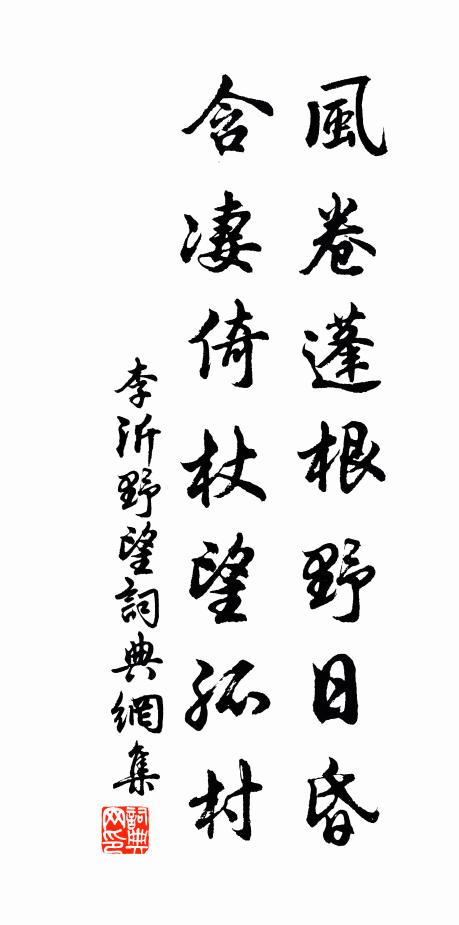 風卷蓬根野日昏
含淒倚杖望孤村
李沂野望詞典網集
詞典网印